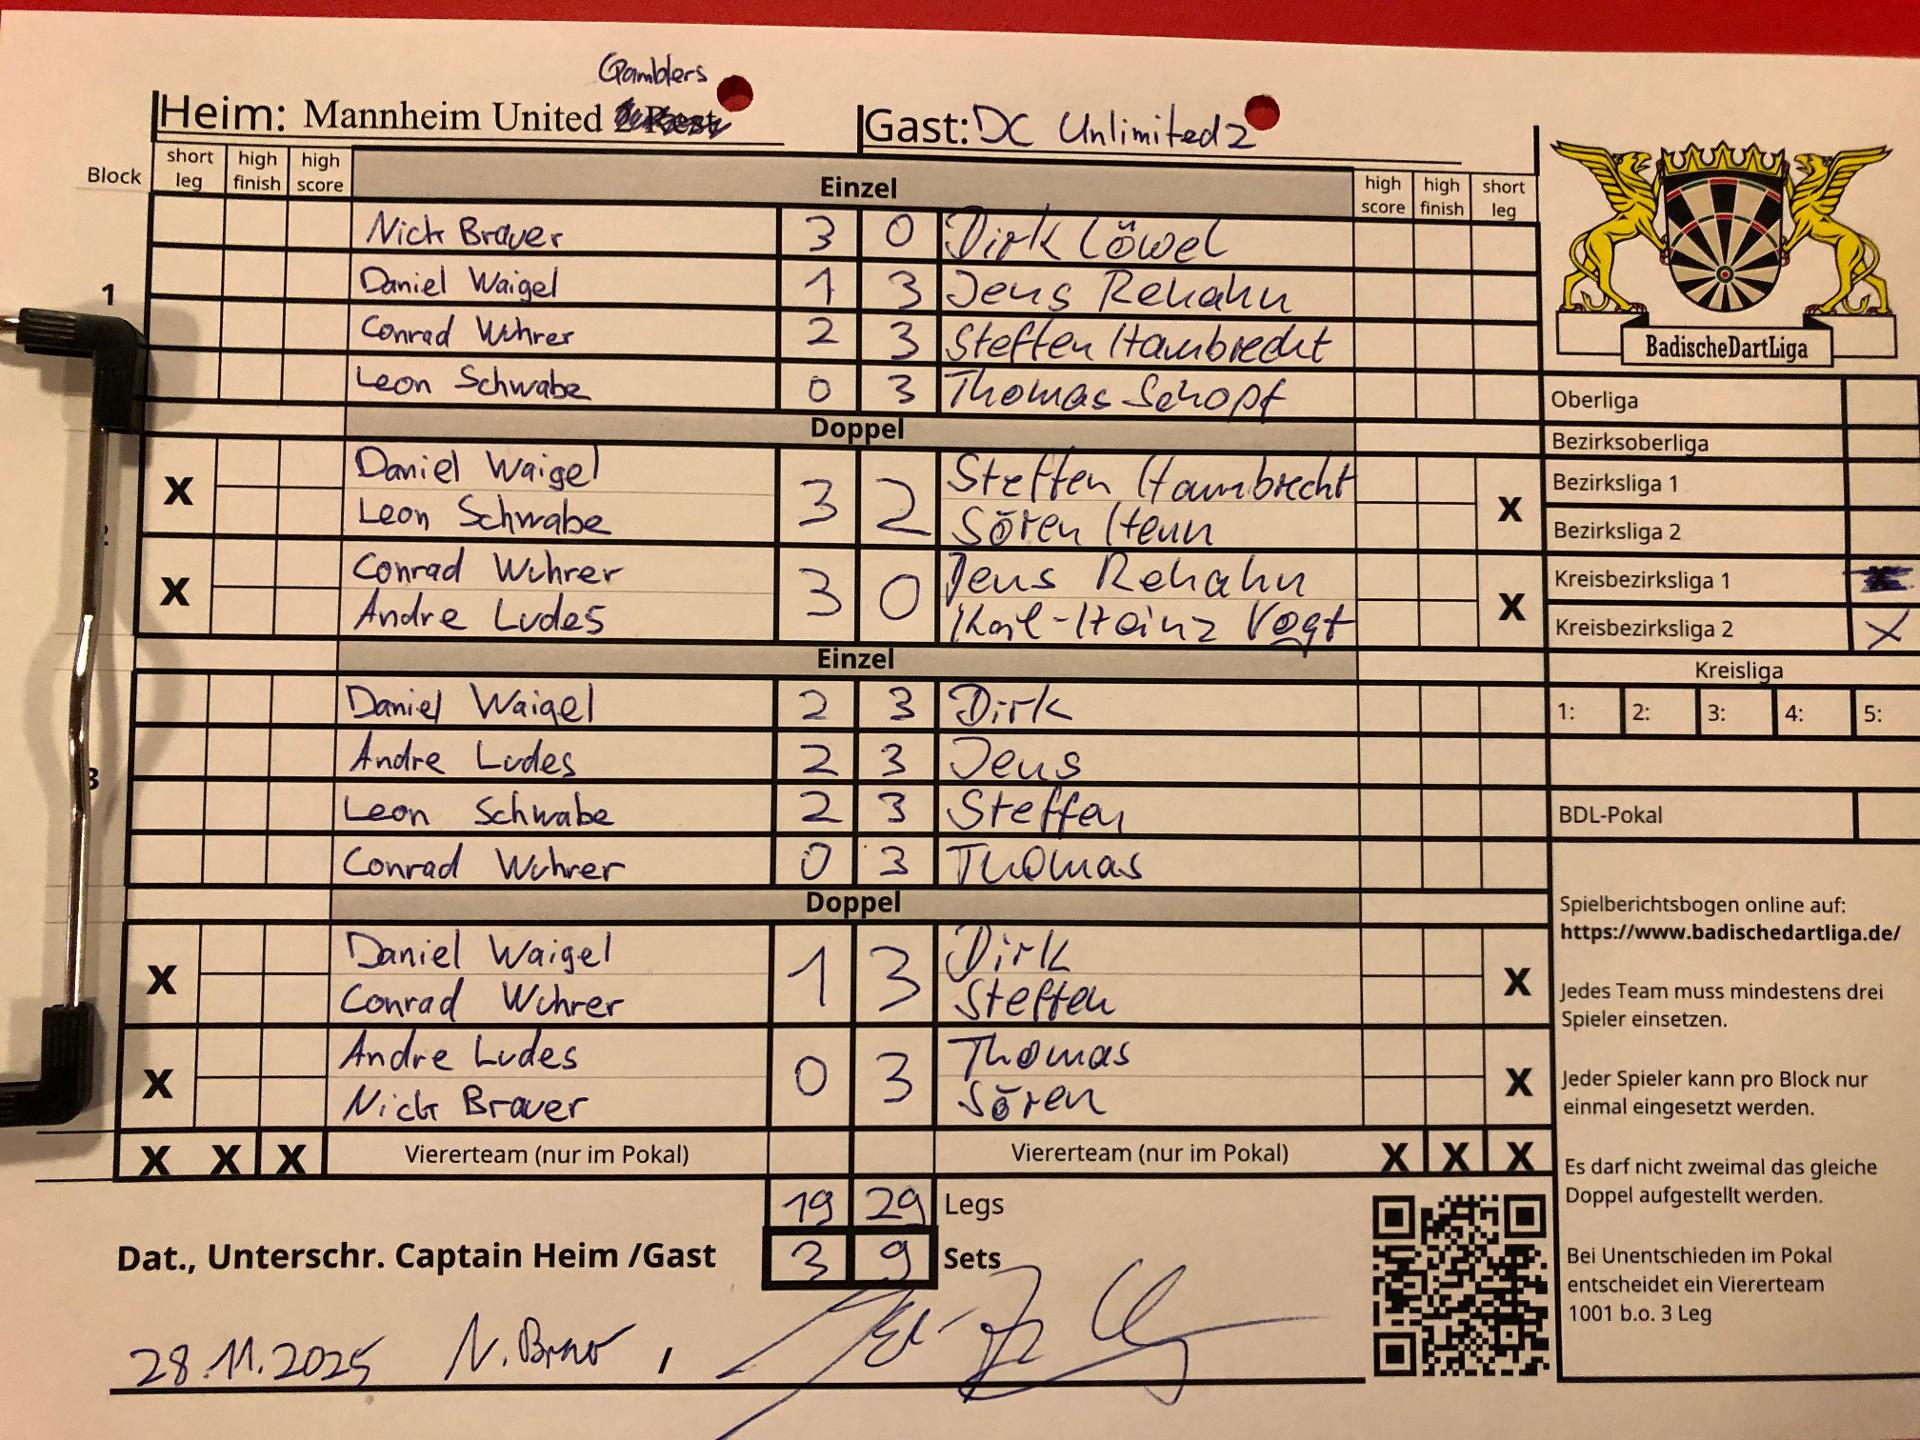 Gamblers
Heim: Mannheim United
Gast: DC Unlimited 2
Block short leg high finish high score Einzel high score high finish short leg
Nick Brauer 3 0 Dirk Löwel
1 Daniel Waigel 1 3 Jens Rehahn
Conrad Wuhrer 2 3 Steffen Hambrecht
Leon Schwabe 0 3 Thomas Schopf
Doppel
Daniel Waigel Steffen Hambrecht
X 3 2 X
Leon Schwabe Sören Henn
Conrad Wuhrer Jens Rehahn
X 3 0 X
Andre Ludes Karl-Heinz Vogt
Einzel
Daniel Waigel 2 3 Dirk
Andre Ludes 2 3 Jens
3 Leon Schwabe 2 3 Steffen
Conrad Wuhrer 0 3 Thomas
Doppel
Daniel Waigel Dirk
X 1 3 X
Conrad Wuhrer Steffen
Andre Ludes Thomas
X 0 3 X
Nick Brauer Sören
X X X Viererteam (nur im Pokal) Viererteam (nur im Pokal) X X X
19 29 Legs
Dat., Unterschr. Captain Heim /Gast 3 9 Sets
28.11.2025 N. Brauer /
BadischeDartLiga
Oberliga
Bezirksoberliga
Bezirksliga 1
Bezirksliga 2
Kreisbezirksliga 1
Kreisbezirksliga 2 X
Kreisliga
1: 2: 3: 4: 5:
BDL-Pokal
Spielberichtsbogen online auf:
https://www.badischedartliga.de/
Jedes Team muss mindestens drei
Spieler einsetzen.
Jeder Spieler kann pro Block nur
einmal eingesetzt werden.
Es darf nicht zweimal das gleiche
Doppel aufgestellt werden.
Bei Unentschieden im Pokal
entscheidet ein Viererteam
1001 b.o. 3 Leg